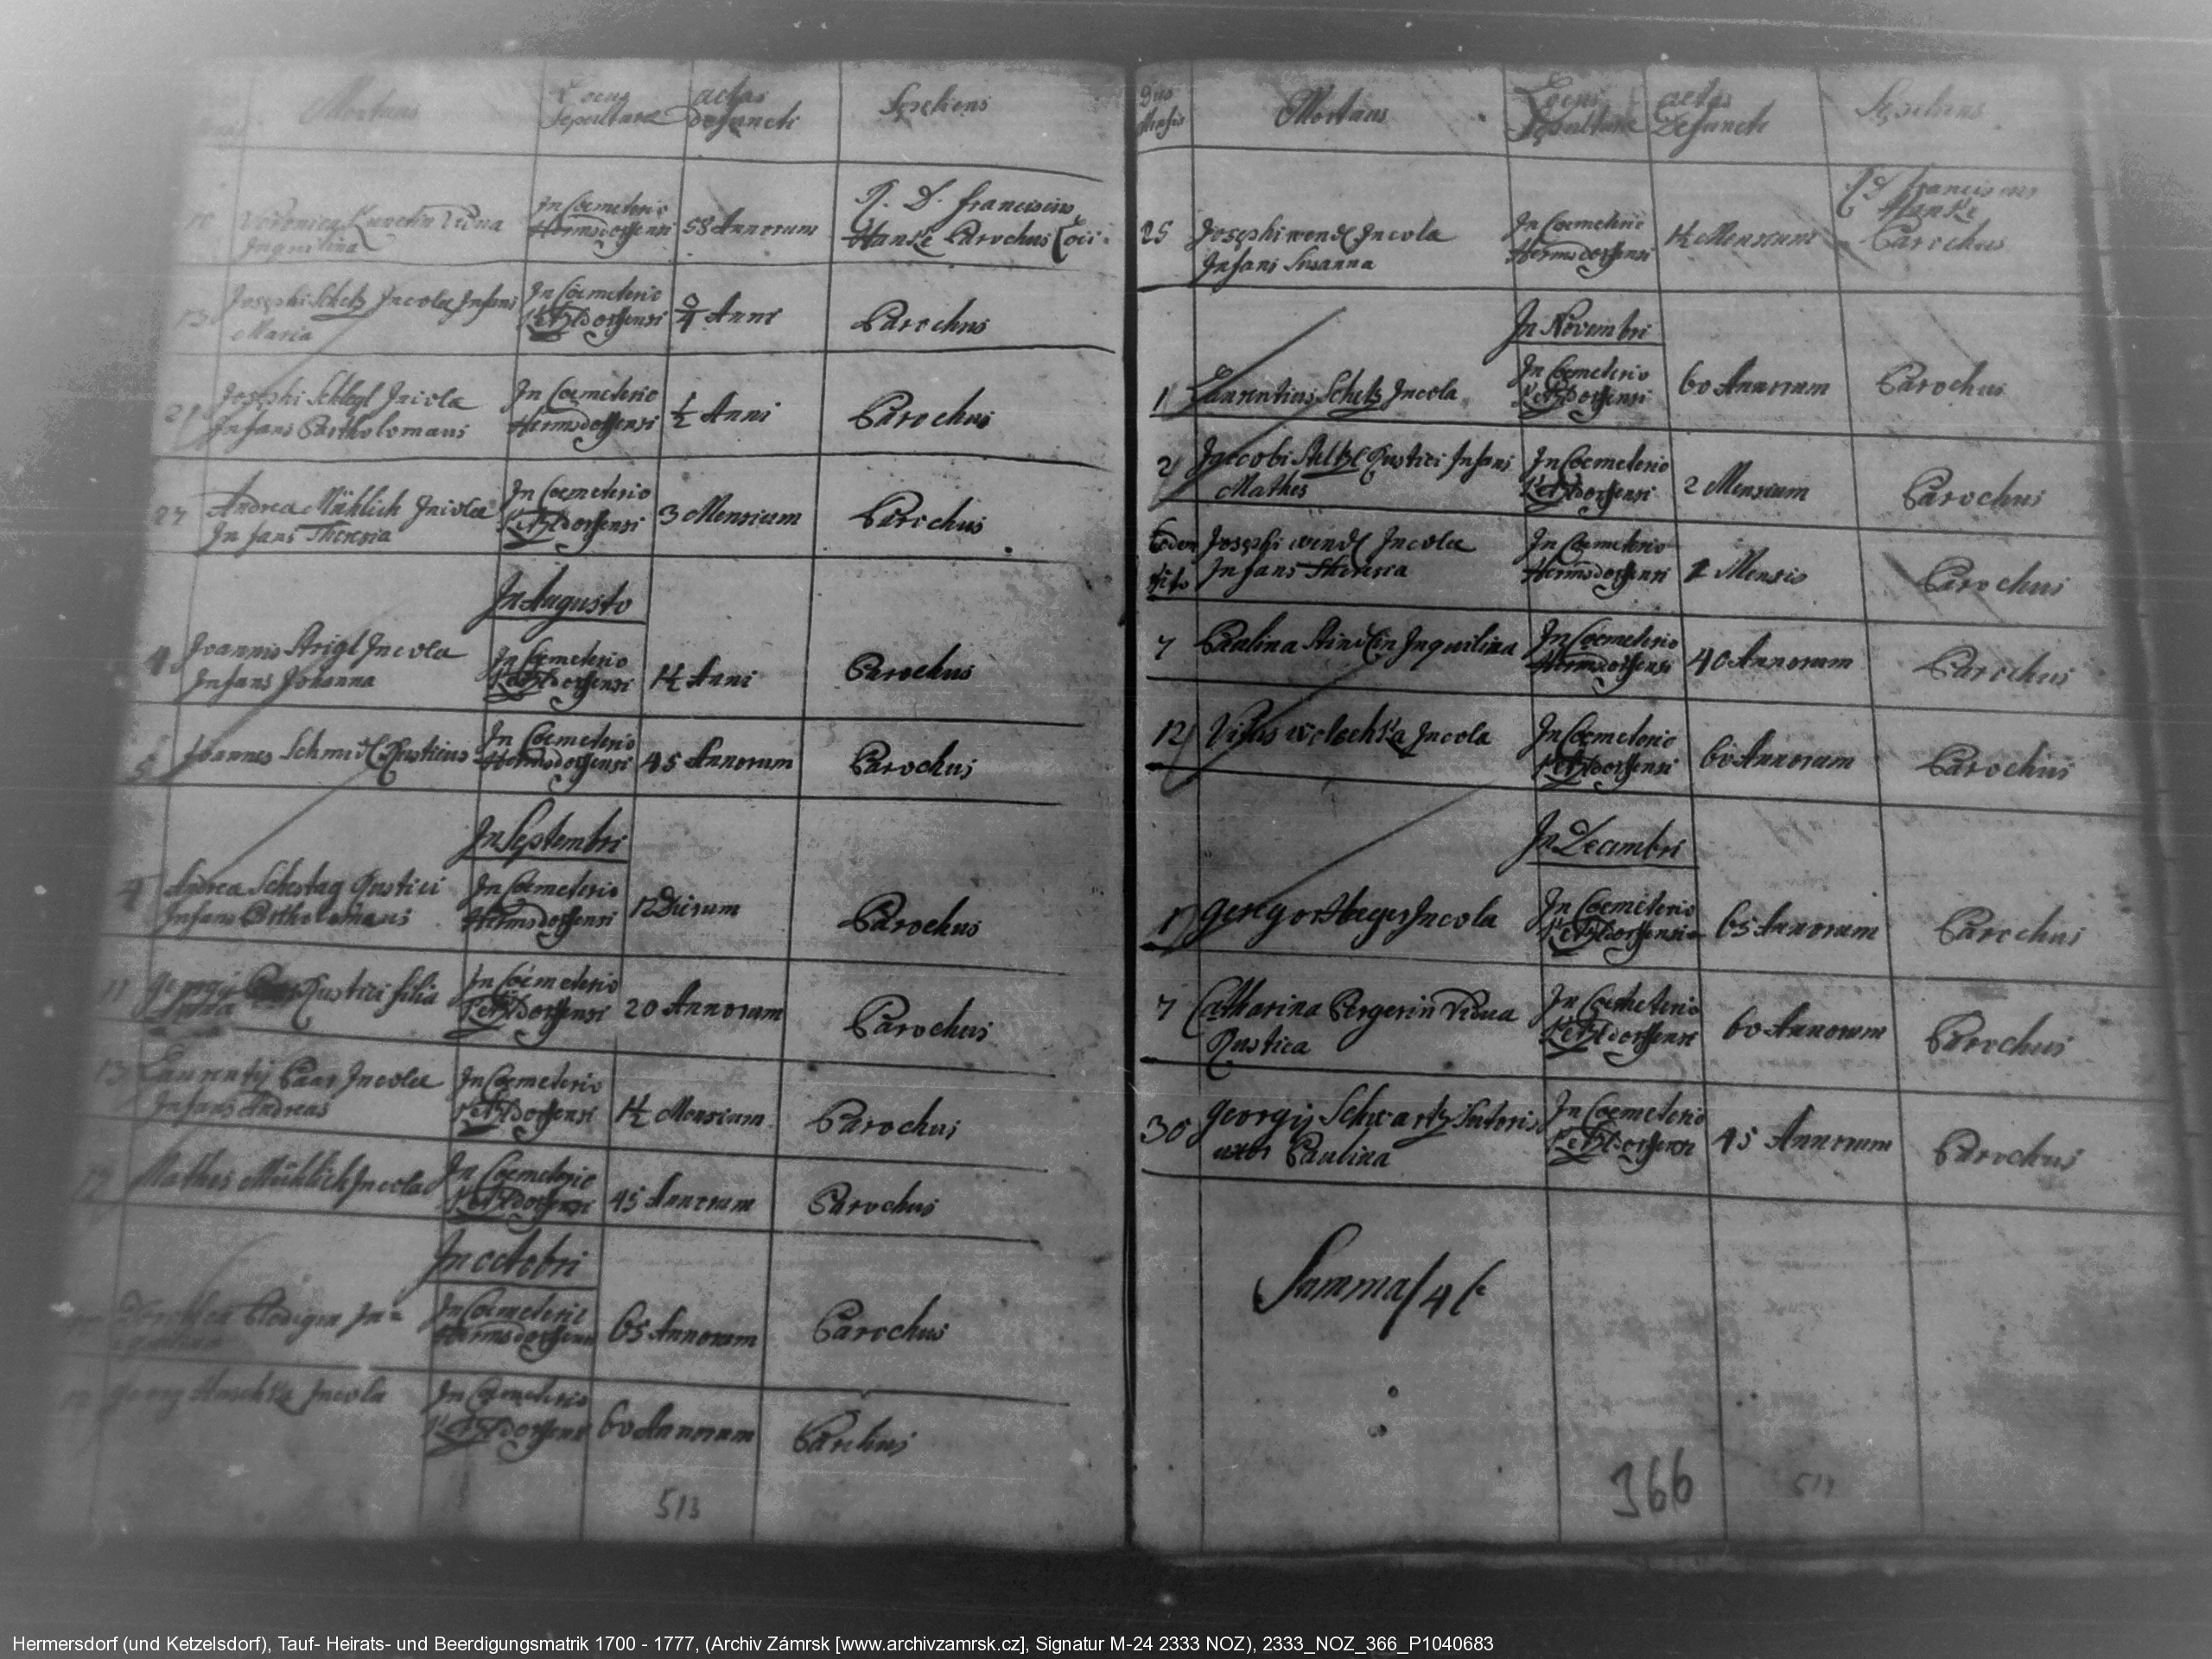 Mortuus
Locus Sepulturae
aetas defuncti
Sepeliens
10 Veronica Kunertin Vidua
Inquilina
In Coemeterio
Hermsdorfensi
58 Annorum
R. D. Franciscus
Hanke Parochus Loci
13 Josephi Schetz Incolae Infans
Maria
In Coemeterio
Ketzldorfensi
Anni
Parochus
21 Josephi Schlegl Incolae
Infans Bartholomaeus
In Coemeterio
Hermsdorfensi
1/2 Anni
Parochus
27 Andrea Mühlich Incolae
Infans Theresia
In Coemeterio
Ketzldorfensi
3 Mensium
Parochus
In Augusto
4 Joannis Strigl Incolae
Infans Johanna
In Coemeterio
Ketzldorfensi
1 1/2 Anni
Parochus
5 Joannes Schmidl Rusticus
In Coemeterio
Hermsdorfensi
45 Annorum
Parochus
In Septembri
4 Andrea Schestag Rustici
Infans Bartholomaeus
In Coemeterio
Hermsdorfensi
12 Dierum
Parochus
11 Georgij Rustici filia
In Coemeterio
Ketzldorfensi
20 Annorum
Parochus
13 Laurentij Paar Incolae
Infans Andreas
In Coemeterio
Ketzldorfensi
1 1/2 Mensium
Parochus
Mathes Mühlich Incola
In Coemeterio
Ketzldorfensi
45 Annorum
Parochus
In Octobri
In Coemeterio
Hermsdorfensi
65 Annorum
Parochus
Georg Haschka Incola
In Coemeterio
Ketzldorfensi
60 Annorum
Parochus
513
Dies Mensis
Mortuus
Locus Sepulturae
aetas Defuncti
Sepeliens
25 Josephi Wendl Incola
Infans Susanna
In Coemeterio
Hermsdorfensi
1 1/2 Mensium
R D Franciscus
Hanke
Parochus
In Novembri
1 Laurentius Schetz Incola
In Coemeterio
Ketzldorfensi
60 Annorum
Parochus
2 Jacobi Rustici Infans
Mathes
In Coemeterio
Ketzldorfensi
2 Mensium
Parochus
Eodem dito
Josephi Wendl Incolae
Infans Theresia
In Coemeterio
Hermsdorfensi
Mensis
Parochus
7 Paulina Inquilina
In Coemeterio
Hermsdorfensi
40 Annorum
Parochus
12 Vitus Incola
In Coemeterio
Ketzldorfensi
60 Annorum
Parochus
In Decembri
1 Gregor Heger Incola
In Coemeterio
Ketzldorfensi
65 Annorum
Parochus
7 Catharina Bergerin Vidua
Rustica
In Coemeterio
Ketzldorfensi
60 Annorum
Parochus
30 Georgij Schwartz Sutoris
uxor Paulina
In Coemeterio
Ketzldorfensi
45 Annorum
Parochus
Summa
366
Hermersdorf (und Ketzelsdorf), Tauf- Heirats- und Beerdigungsmatrik 1700 - 1777, (Archiv Zámrsk [www.archivzamrsk.cz], Signatur M-24 2333 NOZ), 2333_NOZ_366_P1040683